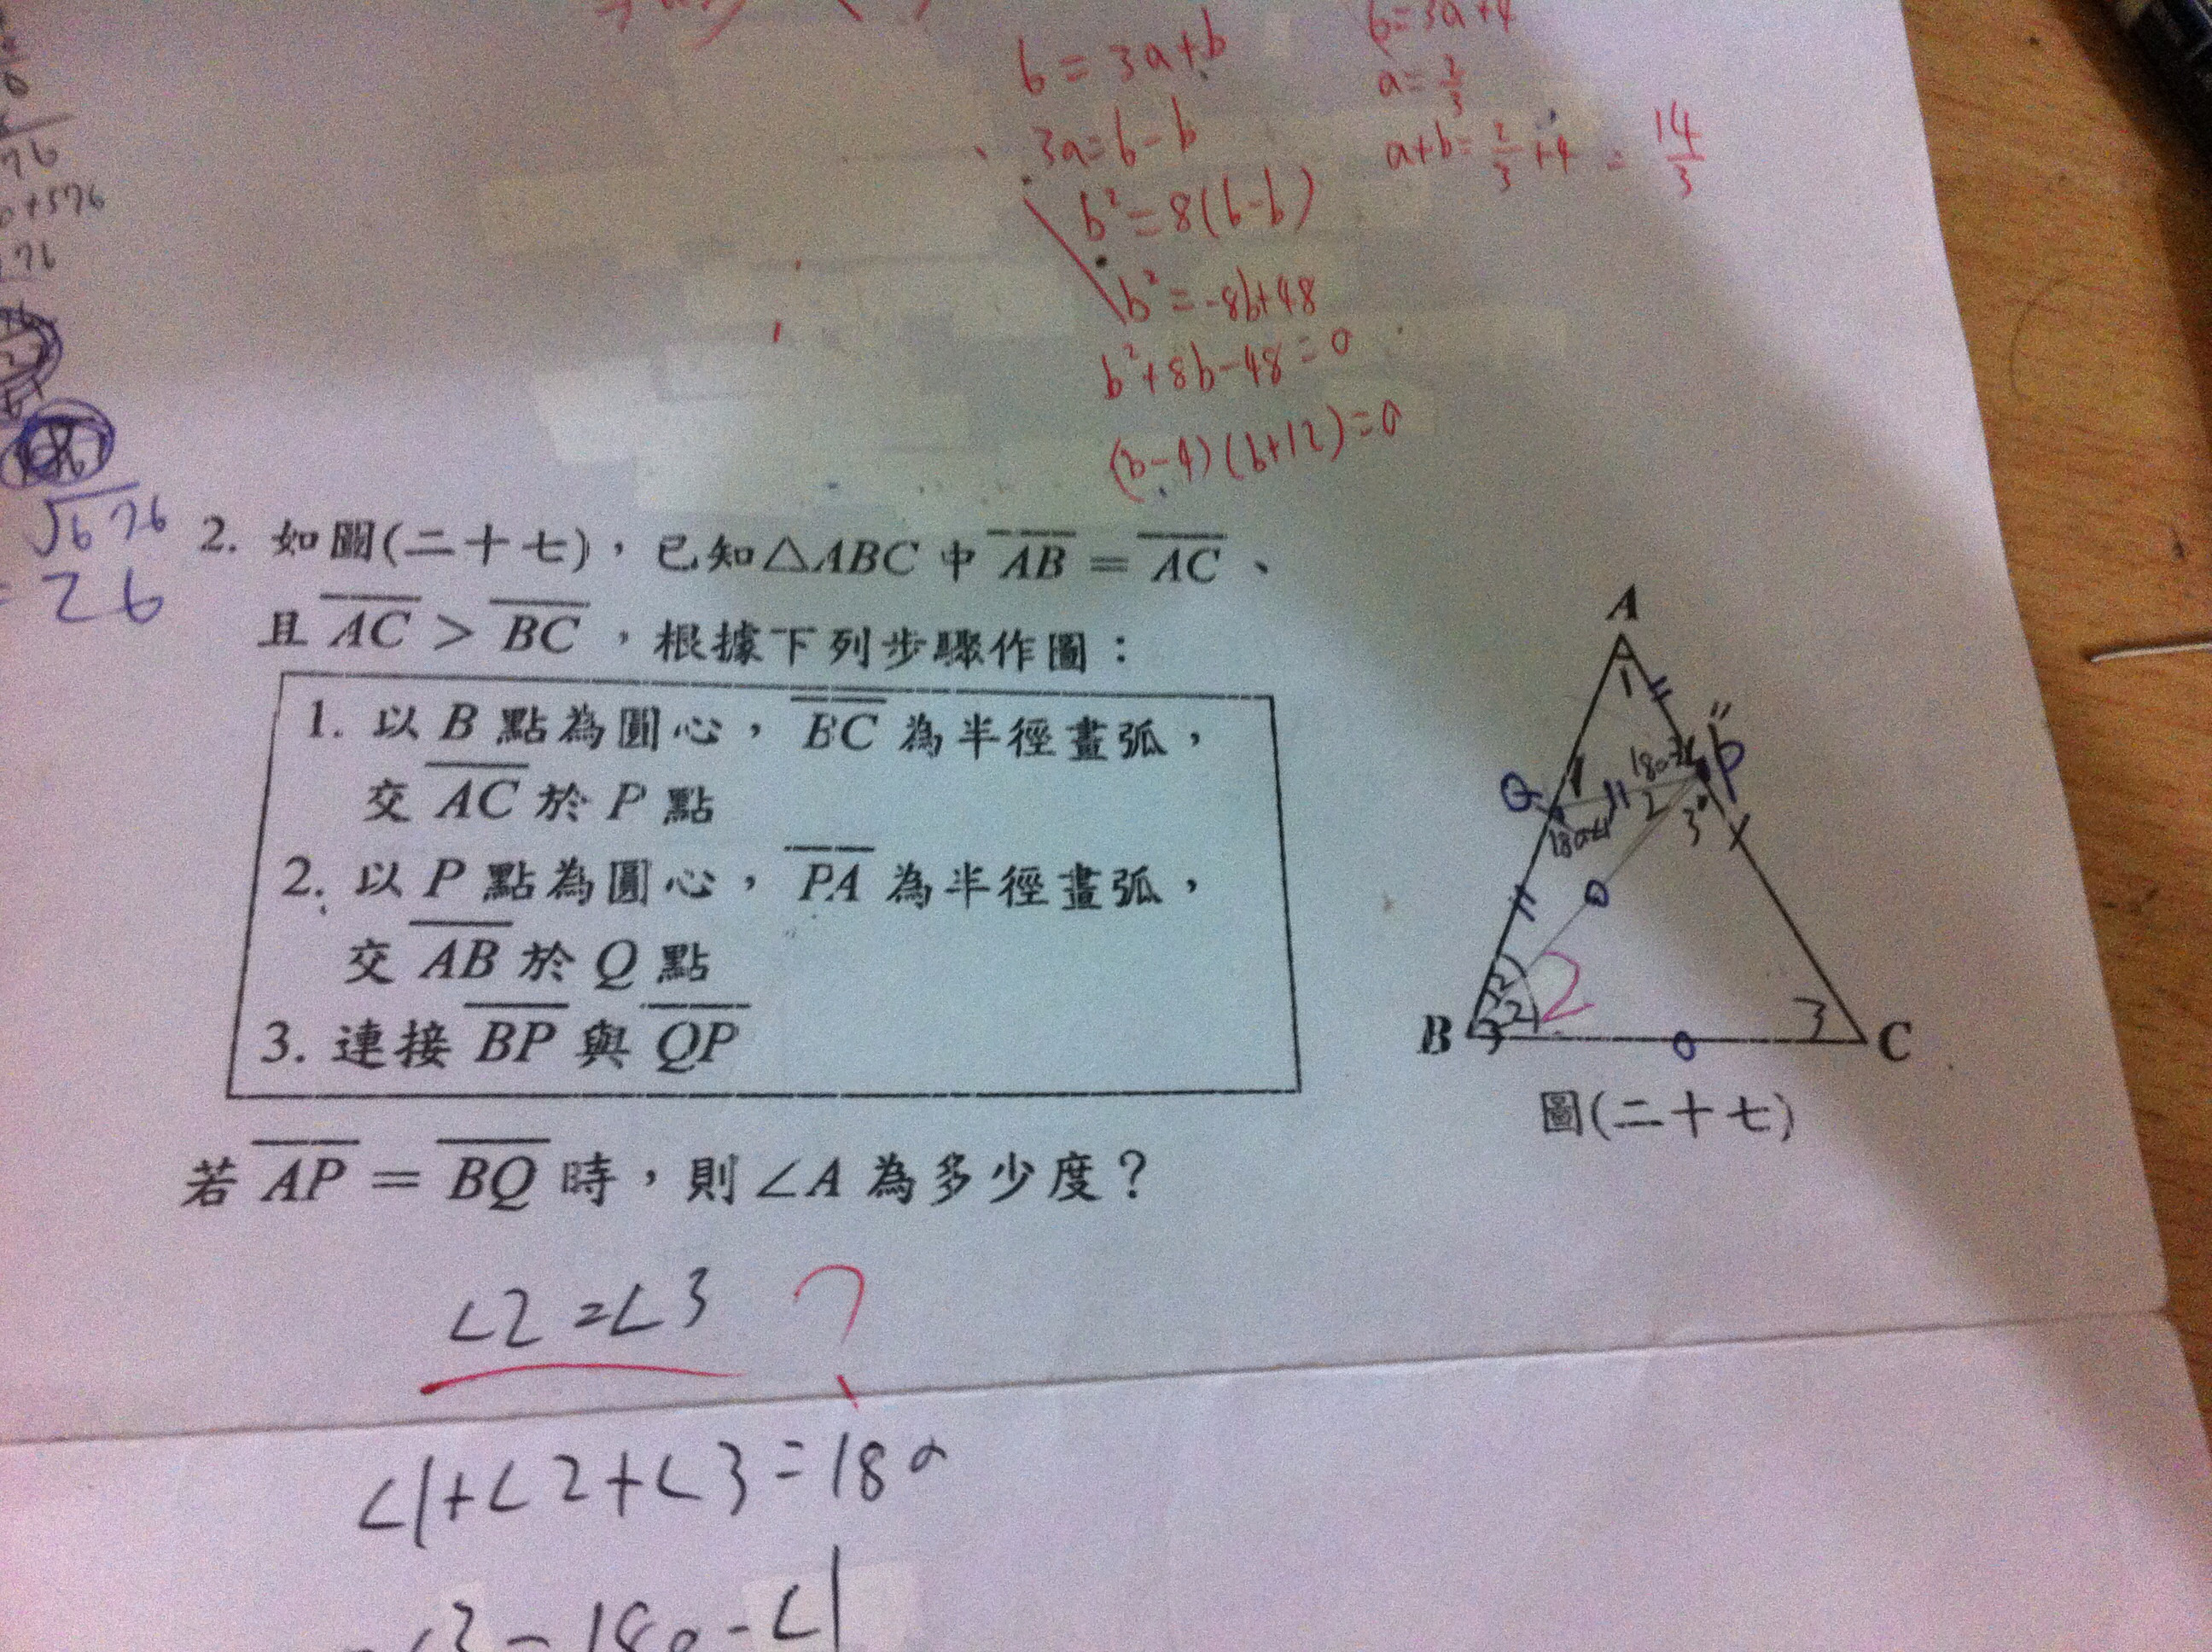 b = 3a+b
3a=6-b
b²=8(6-b)
b²=-8b+48
b²+8b-48=0
(b-4)(b+12)=0
6=3a+4
a=2/3
a+b=2/3+4=14/3
76
+576
76
√676
=26
2. 如圖(二十七)，已知△ABC中 AB = AC、
且 AC > BC，根據下列步驟作圖：
1. 以B點為圓心，BC為半徑畫弧，
交 AC 於 P 點
2. 以P點為圓心，PA為半徑畫弧，
交 AB 於 Q 點
3. 連接 BP 與 QP
若 AP = BQ 時，則∠A 為多少度？
A
1
P
Q
1
2
3
2
2
3
3
B
C
圖(二十七)
∠2=∠3 ?
∠1+∠2+∠3=180
∠3=180-∠1